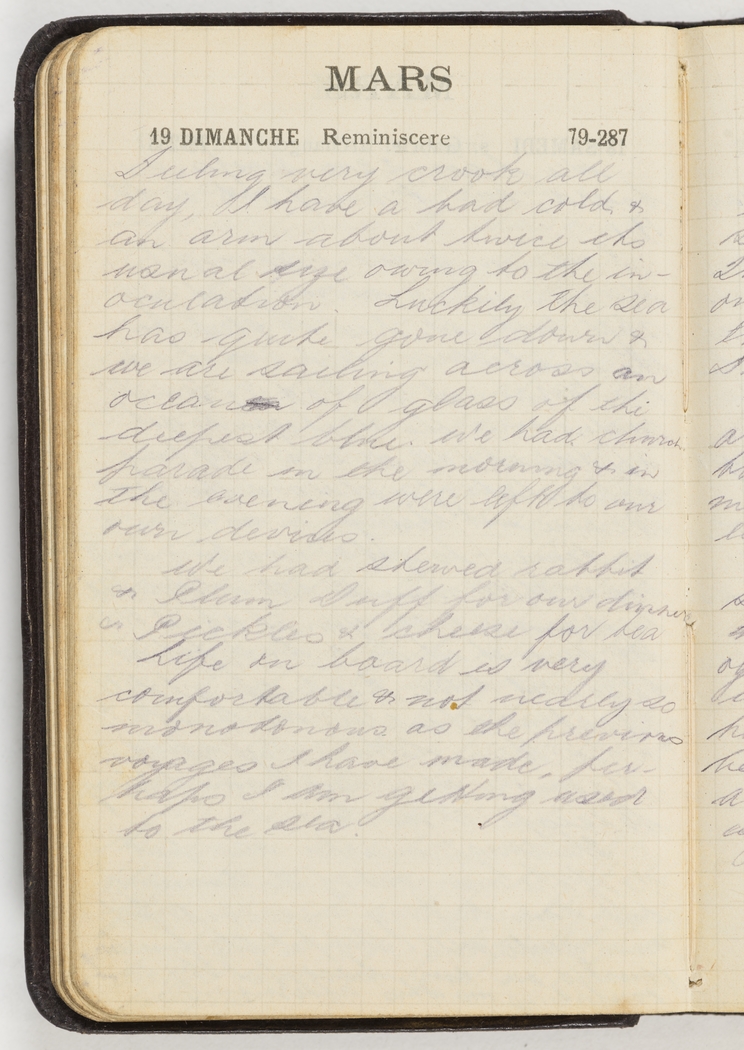 MARS
19 DIMANCHE Reminiscere 79-287
Feeling very crook all
day, I have a bad cold &
an arm about twice its
usual size owing to the in-
oculation. Luckily the sea
has quite gone down &
we are sailing across an
ocean of glass of the
deepest blue. We had church
parade in the morning & in
the evening were left to our
own devises.
We had stewed rabbit
& Plum Duff for our dinner
& Pickles & cheese for tea
Life on board is very
comfortable & not nearly so
monotonous as the previous
voyages I have made, per-
haps I am getting used
to the sea.